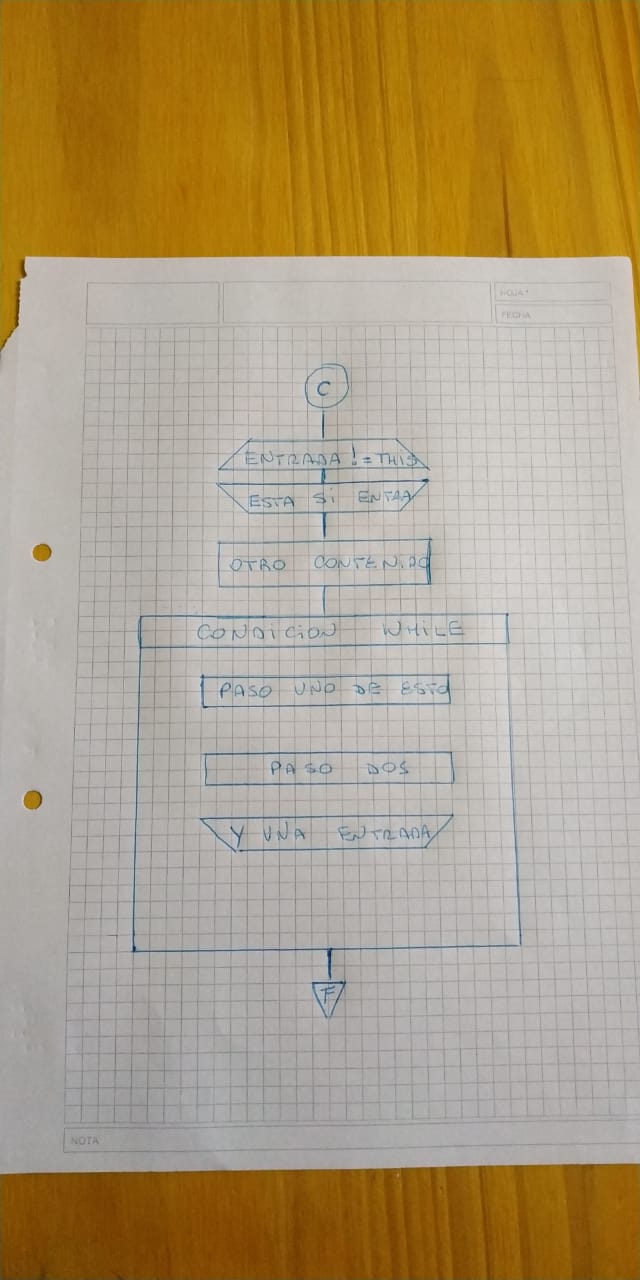 HOJA Nº
FECHA
C
ENTRADA != THIS
ESTA SI ENTRA
OTRO CONTENIDO
CONDICION WHILE
PASO UNO DE ESTO
PASO DOS
Y UNA ENTRADA
F
NOTA